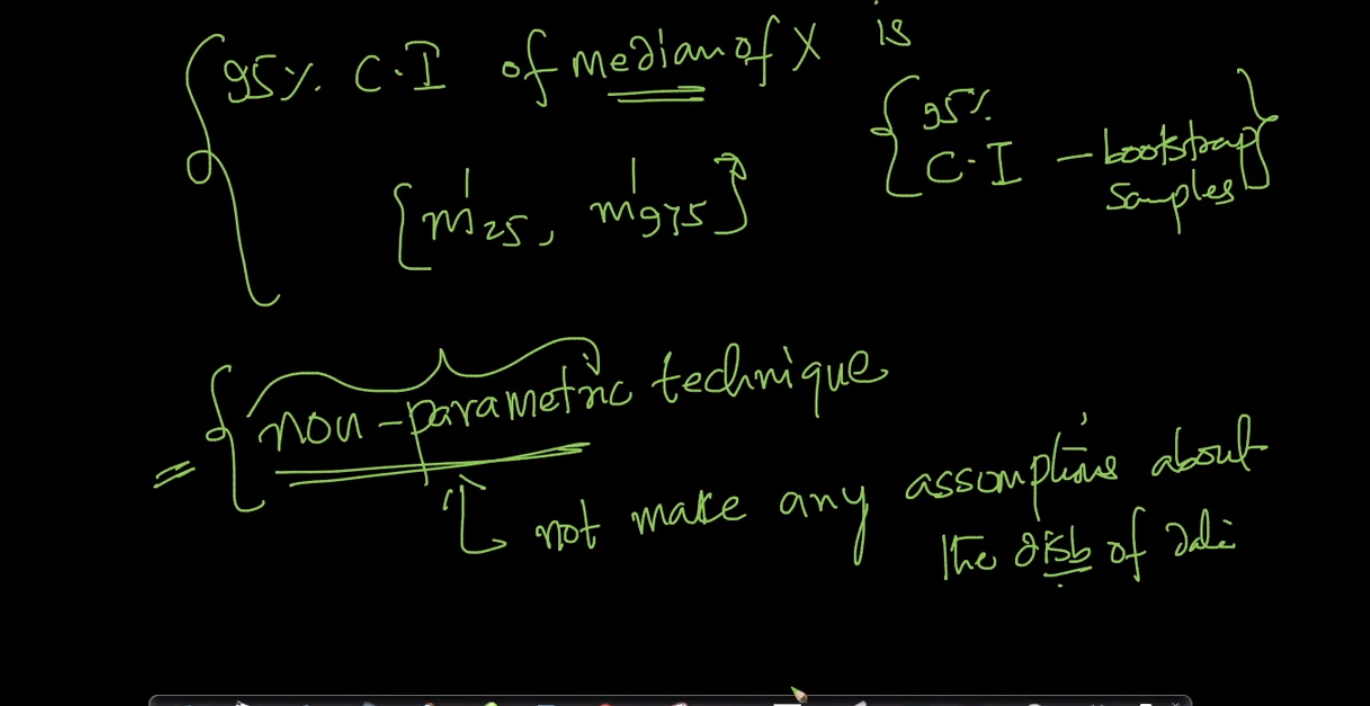 95% C.I of median of X is
[m'25, m'975]
95%
C.I – bootstrap
samples
= non-parametric technique
not make any assumptions about
the disb of data